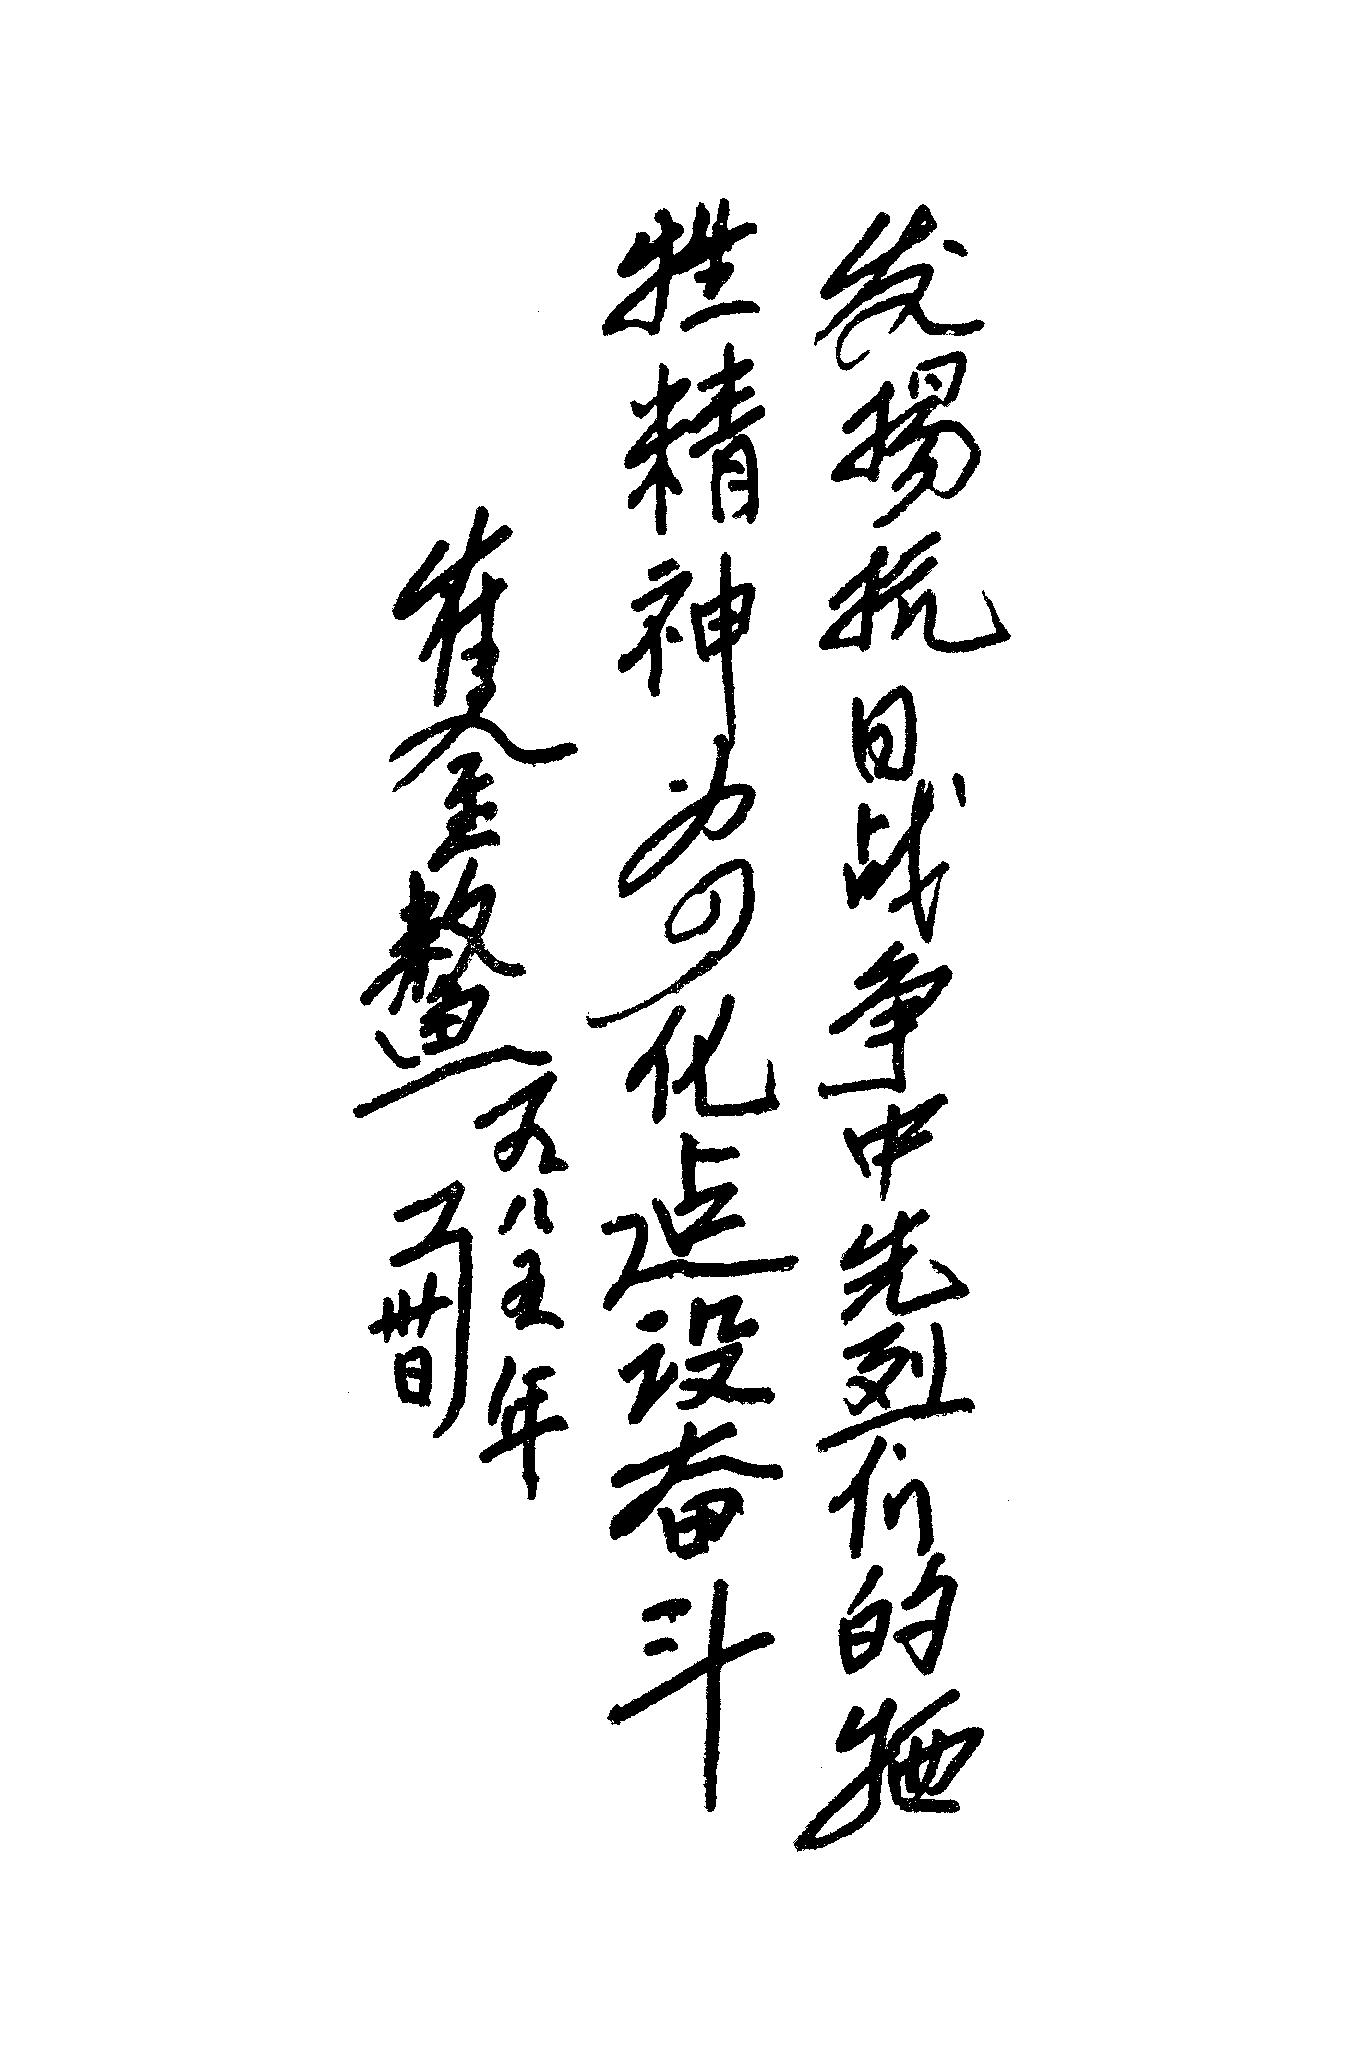 发扬抗日战争中先烈们的牺
牲精神为四化建设奋斗
崔金鳌
一九八五年
月卅日